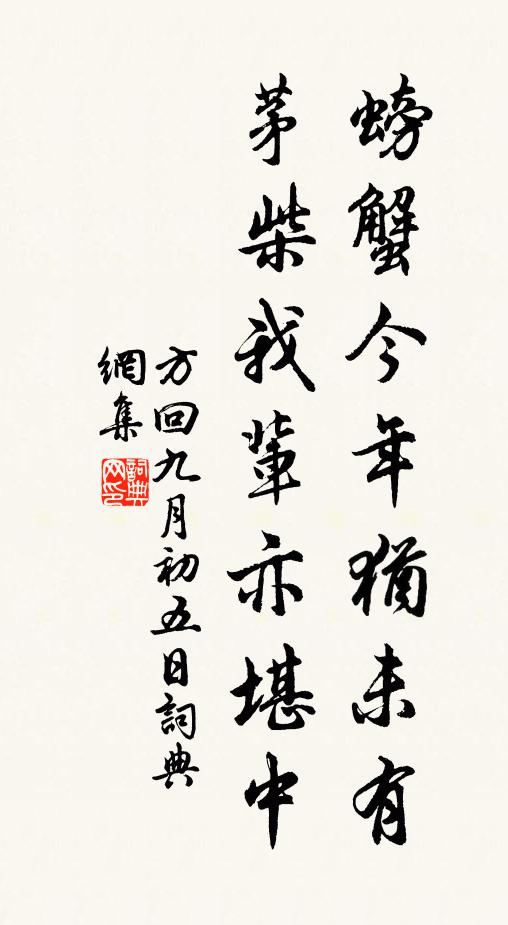 螃蟹今年猶未有
茅柴我輩亦堪中
方回九月初五日詞典
網集
詞典网印